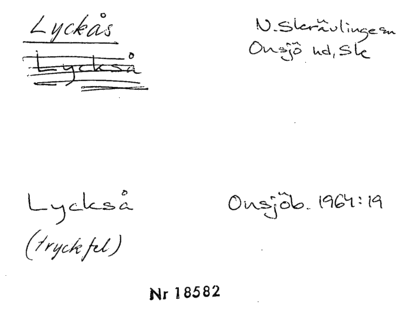 Lyckås
N. Skrävlinge sn
Lyckså
Onsjö hd, Sk
Lyckså
Onsjöb. 1964:19
(tryckfel)
Nr 18582